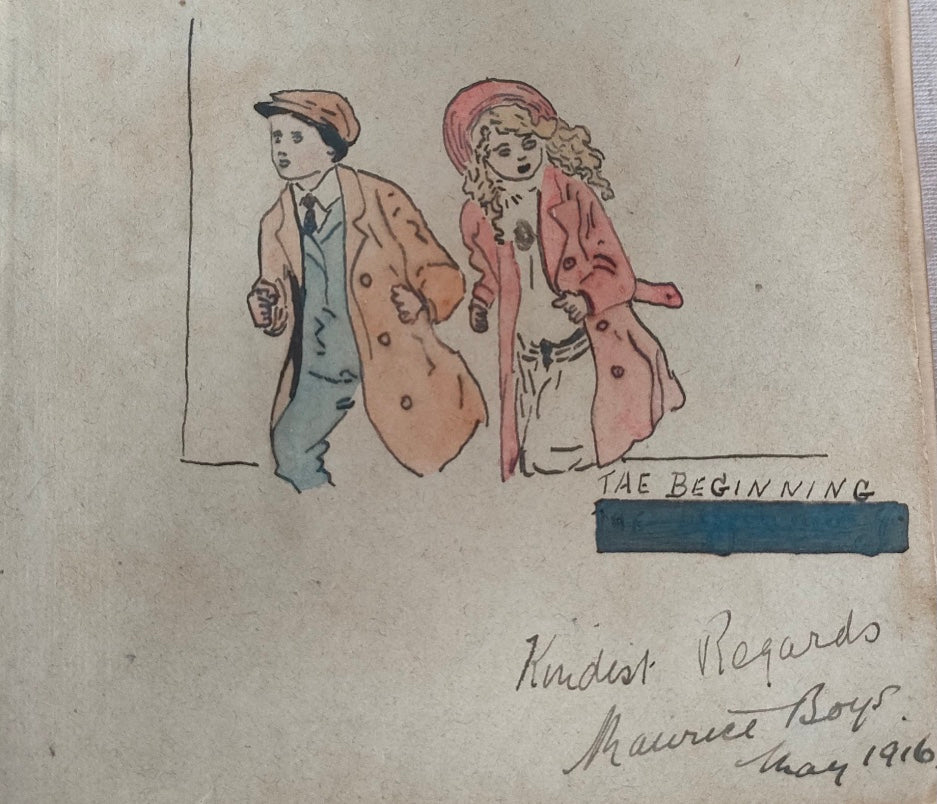 THE BEGINNING
Kindist Regards
Maurice Boys.
May 1916.